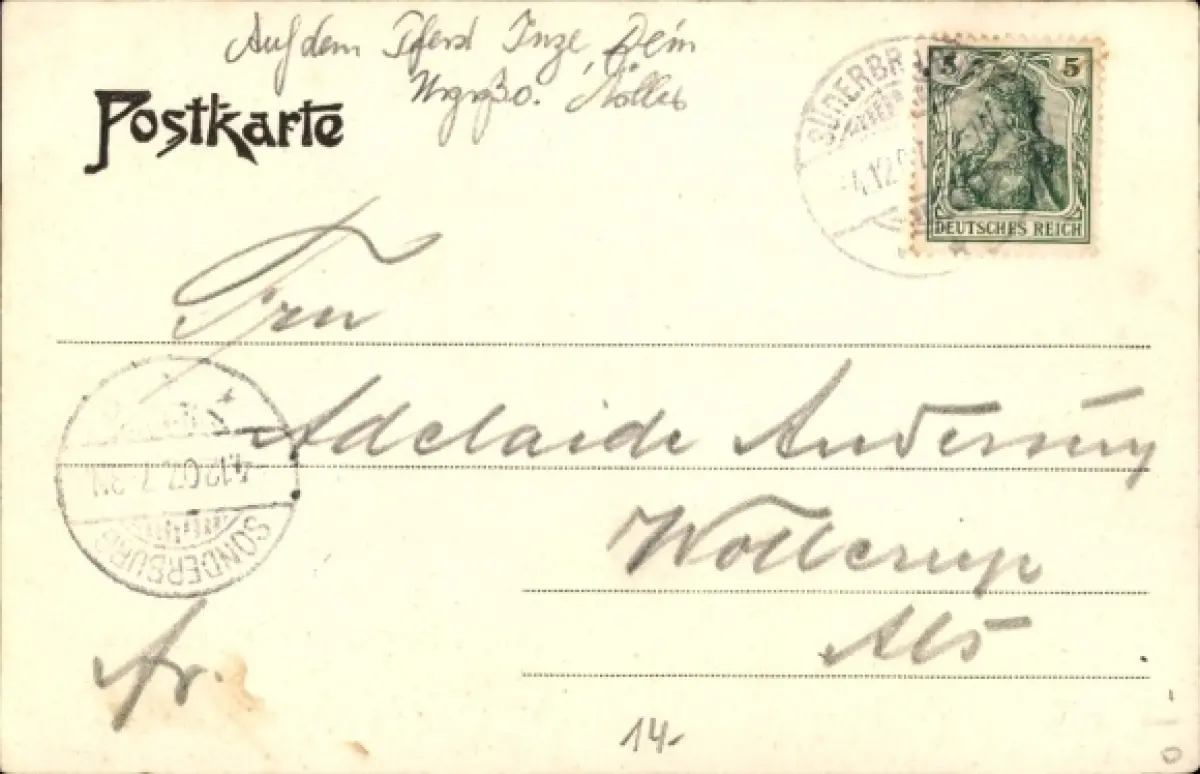 Auf dem Pferd Inge, Dein
Urgroßo. Nolles
Postkarte
5 5
DEUTSCHES REICH
SÜDERBRA
4.12.
Frn
Adelaide Andersen
Wollerup
Als
4.12.07. 7-8N
SONDERBURG
fr.
14.-